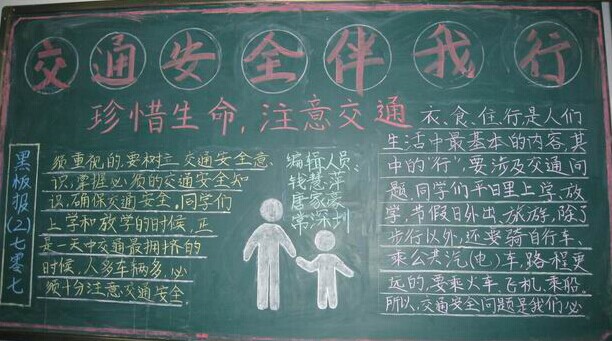 交通安全伴我行
珍惜生命,注意交通
衣、食、住、行是人们
生活中最基本的内容,其
中的"行",要涉及交通问
题.同学们平日里上学、放
学、节假日外出、旅游,除了
步行以外,还要骑自行车、
乘公共汽(电)车,路程更
远的,要乘火车、飞机、乘船。
所以,交通安全问题是我们必
须重视的,要树立交通安全意
识,掌握必须的交通安全知
识,确保交通安全。同学们
上学和放学的时候,正
是一天中交通最拥挤的
时候,人多车辆多,必
须十分注意交通安全.
编辑人员:
钱慧萍
常深圳
黑板报(2)七零七